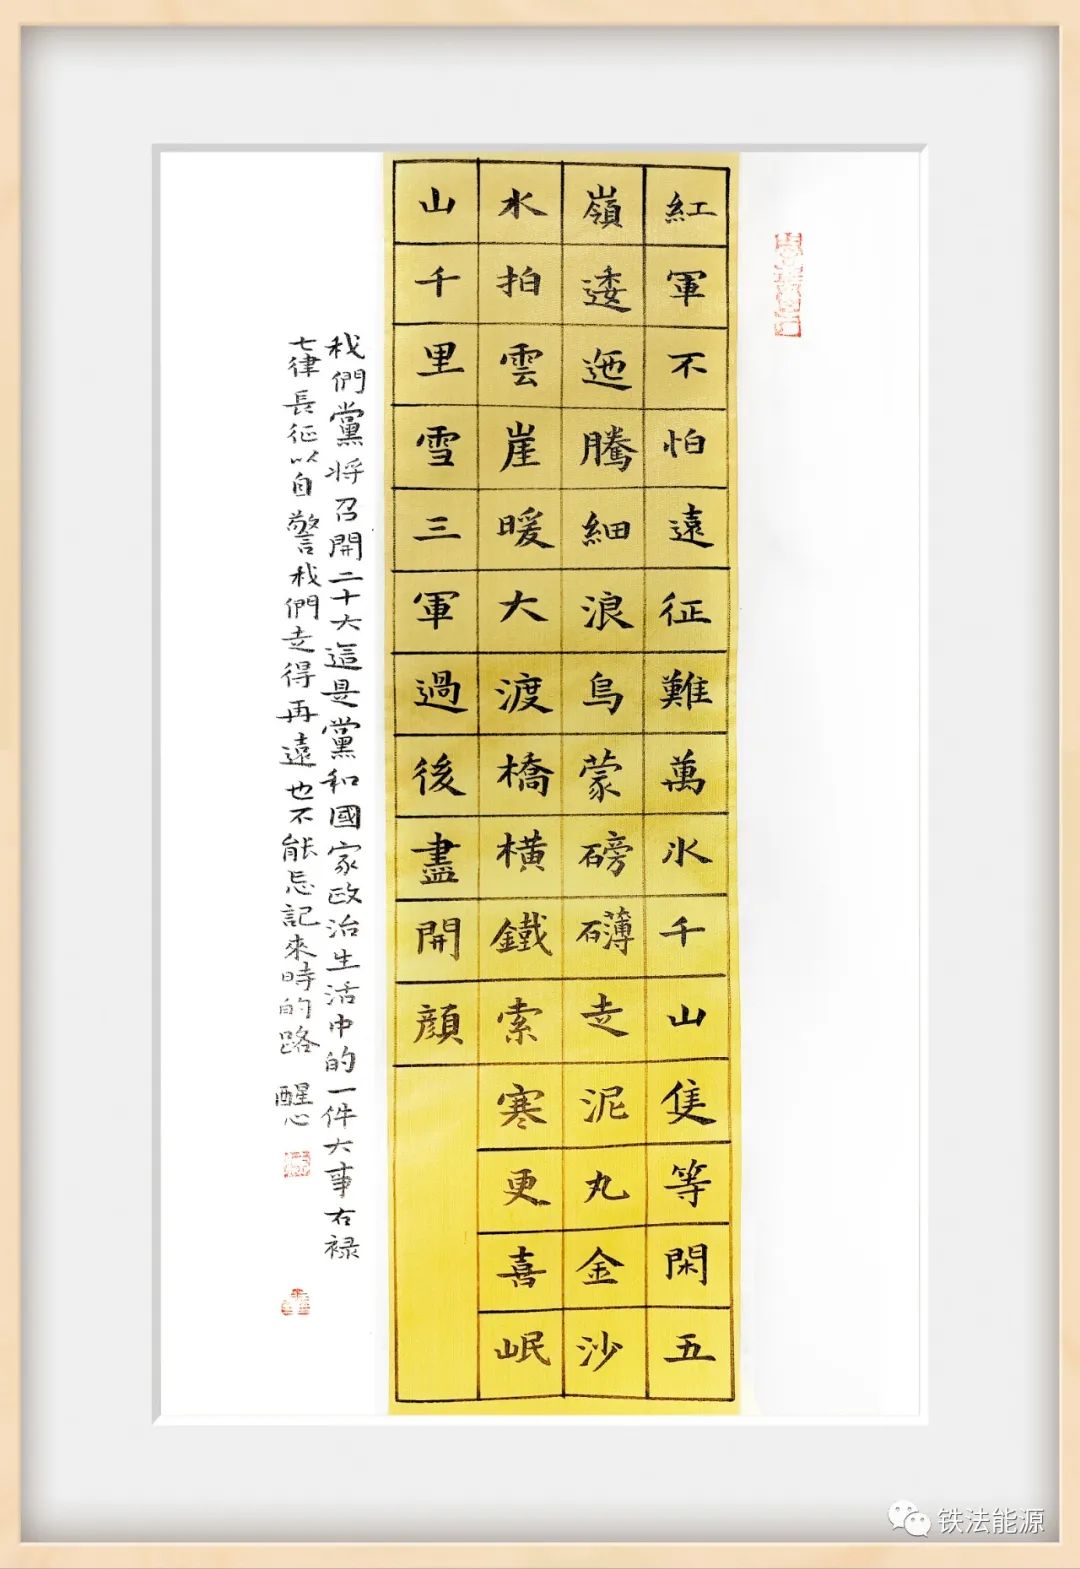 紅軍不怕遠征難萬水千山隻等閑五
嶺逶迤騰細浪烏蒙磅礴走泥丸金沙
水拍雲崖暖大渡橋橫鐵索寒更喜岷
山千里雪三軍過後盡開顔
我們黨将召開二十大這是黨和國家政治生活中的一件大事右禄
七律長征以自警我們走得再遠也不能忘記來時的路 醒心
铁法能源